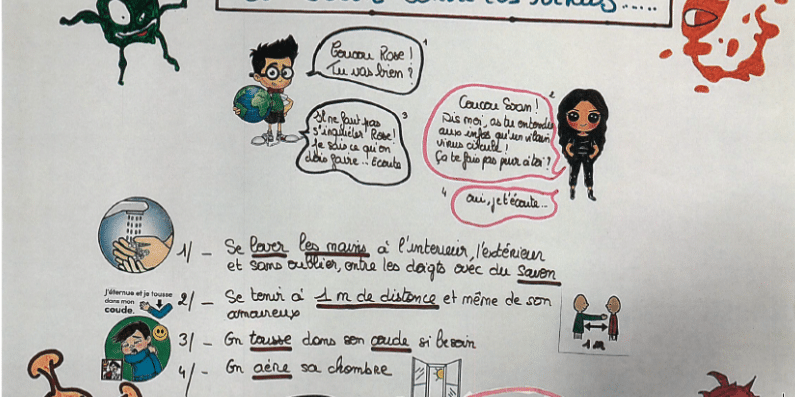 Coucou Rose !
Tu vas bien ?
1
Coucou Soan !
Dis moi, as tu entendu
aux infos qu'un vilain
virus circule !
Ça te fais pas peur à toi ?
2
Il ne faut pas
s'inquiéter Rose !
Je sais ce qu'on
dois faire... Ecoute
3
4
oui, je t'écoute...
1/ - Se laver les mains à l'interieur, l'extérieur
et sans oublier, entre les doigts avec du savon
J'éternue et je tousse
dans mon
coude.
2/ - Se tenir à 1 m de distance et même de son
amoureux
1 m
3/ - On tousse dans son coude si besoin
4/ - On aère sa chambre